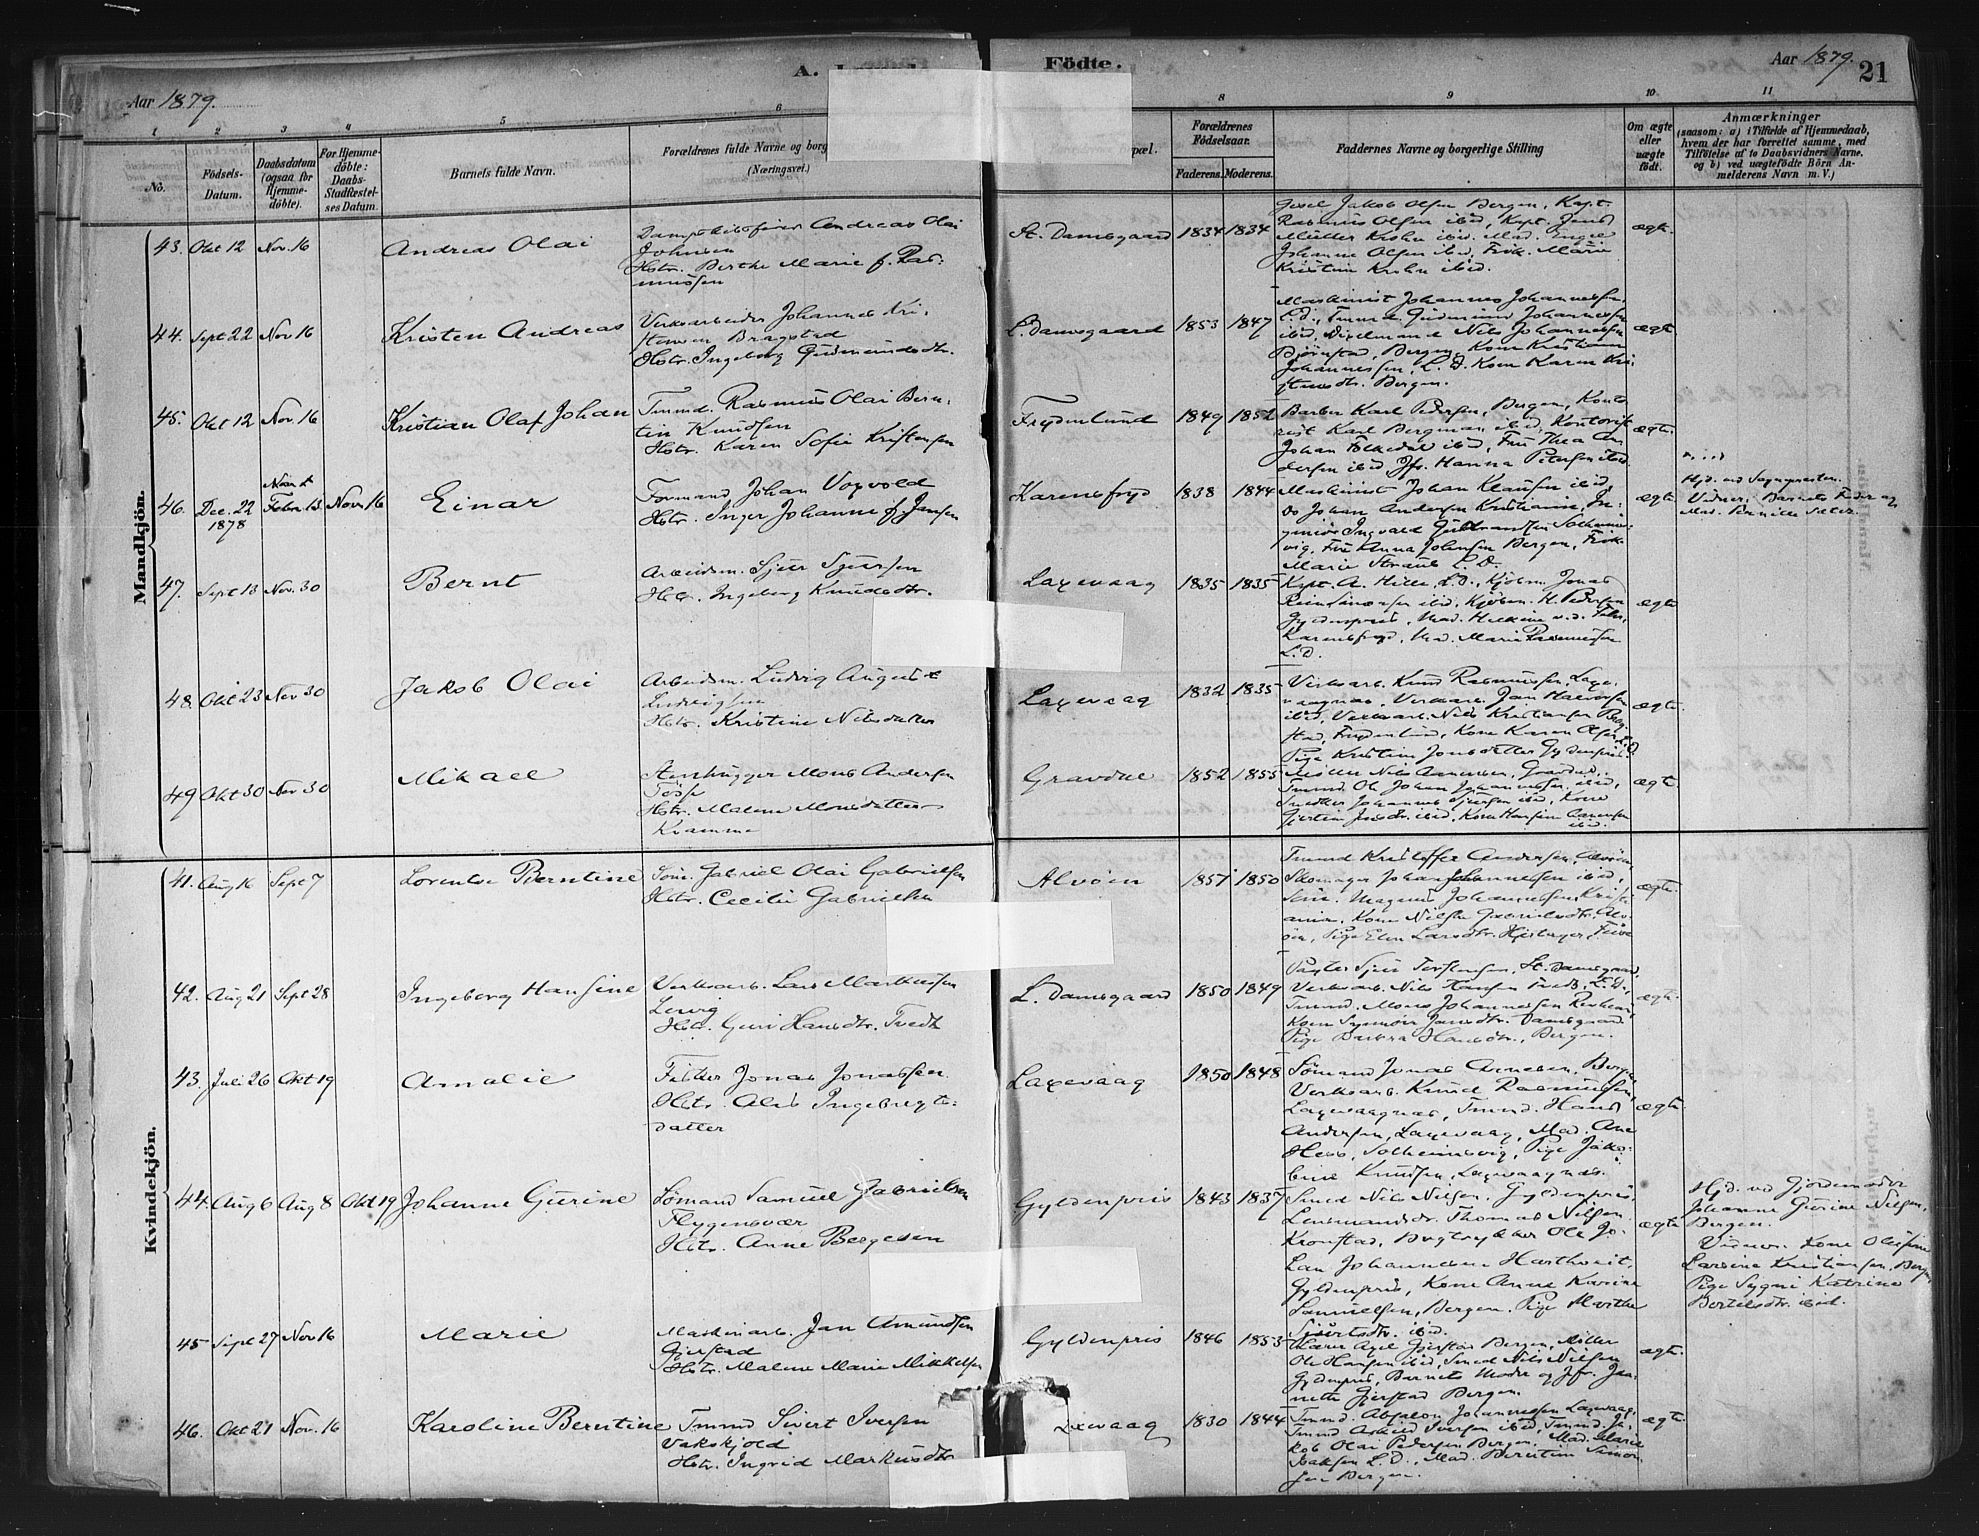 Aar 1879.
Födte.
Aar 1879.
21
1 2 3 4 5 6 8 9 10 11
No.
Födsels-
Datum.
Daabsdatum
(ogsaa for
Hjemme-
döbte).
For Hjemme-
döbte:
Daabs-
Stadfæstel-
ses Datum.
Barnets fulde Navn.
Forældrenes fulde Navne og borg
(Næringsvei.)
Forældrenes
Födselsaar.
Faderens. Moderens.
Faddernes Navne og borgerlige Stilling
Om ægte
eller
uægte
födt.
Anmærkninger
(saasom: a) i Tilfælde af Hjemmedaab,
hvem der har forrettet samme, med
Tilföielse af to Daabsvidners Navne.
og b) ved uægtefödte Börn An-
melderens Navn m. V.)
Mandkjön.
43. Okt 12 Nov. 16
Andreas Olai
Andreas Olai
Johnsen
Hstr. Berthe Marie f. Ras-
mussen
St. Damsgaard 1834 1834
Jakob Olsen Bergen, Kapt.
Rasmus Olsen ibid, Kapt. Jens
Müller Krohn ibid. Mad. Inger
Johanne Olsen ibid, Frøk. Marie
Kristine Krohn ibid.
ægte.
44. Sept 22 Nov 16
Kristen Andreas
Verksarbeider Johannes Kri-
stensen Bragstad
Hstr. Ingeborg Gudmundsdtr.
L. Damsgaard 1853 1847
Maskinist Johannes Johannessen,
L. D., Tmmd Gudmund Johannessen
ibid, Nils Johannessen
Bjørnstad, Bergen, Kone Kristiane
Johannessen, L. D. Kone Karen Kri-
stensdtr. Bergen.
ægte
45. Okt 12 Nov. 16
Kristian Olaf Johan
Tmmd. Rasmus Olai Bern-
tin Knudsen
Hstr. Karen Sofie Kristensen
Frydenlund 1849 1852
Barber Karl Pedersen, Bergen, Konto-
rist Karl Bergman ibid, Kontorist
Johan Folkedal ibid, Fru Thea An-
dersen ibid Jfr. Hanna Petersen ibid.
ægte.
46. Dec. 22
1878
Febr. 13 Nov. 16
Einar
Formand Johan Vogvold
Hstr. Inger Johanne f. Jansen
Karensfryd 1838 1844
Maskinist Johan Klausen ibid,
Do Johan Andersen Kristiania, In-
geniør Ingvald Gulbrandsen Solheims-
vig, Fru Anna Johnsen Bergen, Frøk.
Marie Straus L. D.
ægte
Hjd. ved Sognepresten.
Vidner: Barnets Fader og
Mad. Pernille Sæter.
47. Sept 13 Nov. 30
Bernt
Arbeidsm. Sjur Sjursen
Hstr. Ingeborg Knudsdtr.
Laxevaag 1835 1835
Kapt. A. Hille L. D., Kjøbm. Jonas
ibid, Kjøbm. H. Pedersen
Gyldenpris, Mad.
Karensfryd, Mad. Marie Rasmussen
L. D.
ægte
48. Okt 23 Nov 30
Jakob Olai
Arbeidsm. Ludvig August
Ludvigsen
Hstr. Kristine Nilsdatter
Laxevaag 1832 1835
Verksarb. Knud Rasmussen, Laxe-
vaagnæs, Verksarb. Jan Halvorsen
ibid, Verksarb. Nils Kristiansen Brag-
stad, Frydenlund, Kone Karen Olsen L. D.
Pige Kristin Jonsdatter Gyldenpris.
ægte.
49 Okt 30 Nov 30
Mikael
Stenhugger Mons Andersen
Tøsse
Hstr. Malene Monsdatter
Kramme
Gravdal 1852 1855
Møller Nils Gravdal,
Tmmd. Ole Johan Johannessen ibid,
Snedker Johannes ibid, Kone
ibid, Kone Hansine
ibid.
ægte.
Kvindekjön.
41. Aug 16 Sept 7
Lorentse Berntine
Søm. Gabriel Olai Gabrielsen
Hstr. Cecilie Gabrielsen
Alvøen 1851 1850
Tmmd Kristoffer Andersen, Alvøen,
Skomager Johan Johannessen ibid,
Magnus Johannessen Kristi-
ania, Kone Gabrielsdtr. Alv-
øen, Pige Elen Larsdtr.
ægte.
42. Aug 21 Sept 28
Ingeborg Hansine
Verksarb. Lars Markussen
Hstr. Guri Hansdtr. Tvedt
L. Damsgaard 1850 1849
Sjur Torstensen, St. Damsgaard,
Verksarb. Nils Hansen Tvedt, L. D.,
Tmmd. Mons Johannessen
Kone Synnøve Jansdtr. Damsgaard
Pige Barbra Hansdtr., Bergen.
ægte.
43. Juli 26 Okt 19
Amalie
Fisker Jonas Jonassen.
Hstr. Alis Ingebregts-
datter
Laxevaag 1850 1848
Sømand Jonas Arnesen, Bergen
Verksarb. Knud Rasmussen,
Laxevaagnæs, Tmmd. Hans
Andersen, Laxevaag, Mad. Ane
Hess, Solheimsvig, Pige Jako-
bine Knudsen, Laxevaagnæs.
ægte.
44. Aug 6 Aug 8 Okt 19
Johanne Gurine
Sømand Samuel Gabrielsen
Flygensvær
Hstr. Anne Bergesen
Gyldenpris 1843 1837
Smed Nils Nilsen, Gyldenpris,
Lensmandsdr. Thomas Nilsen
Kronstad, Bogtrykker Ole Jo-
han Johannesen Harthveit,
Gyldenpris, Kone Anne Karine
Samuelsen, Bergen. Pige Marthe
Sjurtsdtr. ibid.
ægte
Hjd. ved Gjordemoder
Johanne Gurine Nilsen,
Bergen.
Vidner. Kone Olufine
Larsine Kristiansen, Bergen,
Pige Sygni Katrine
Bertelsdtr. ibid.
45 Sept 27 Nov. 16
Marie
Maskinarb. Jan Amundsen
Gjerstad
Hstr. Malene Marie Mikkelsen
Gyldenpris 1846 1853
Axel Gjerstad Bergen, Møller
Ole Hansen ibid, Smed Nils Nilsen
Gyldenpris, Barnets Moder og Jfr. Jan-
nette Gjerstad Bergen.
ægte.
46. Okt 21 Nov. 16
Karoline Berntine
Tmmd Sivert Iversen
Vakskjold
Hstr. Ingrid Markusdtr
Laxevaag 1830 1844
Tmmd. Absalon Johannessen Laxevaag,
Tmmd Iversen ibid, Tmmd. Ja-
kob Olai Pedersen Bergen, Mad. Marie
Isaksen L. D., Mad. Berntine Simon-
sen Bergen.
ægte.